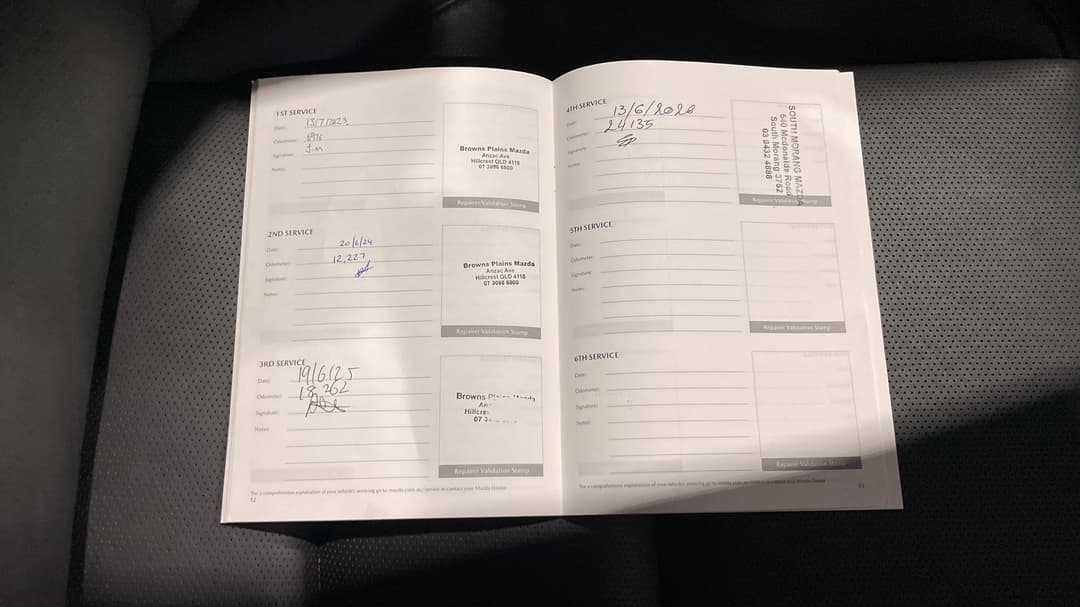 1ST SERVICE
Date: 13/7/2023
Odometer:
Signature: J.M
Notes:
Browns Plains Mazda
Anzac Ave
Hillcrest QLD 4118
07 3086 6800
Repairer Validation Stamp
2ND SERVICE
Date: 20/6/24
Odometer: 12,227
Signature:
Notes:
Browns Plains Mazda
Anzac Ave
Hillcrest QLD 4118
07 3086 6800
Repairer Validation Stamp
3RD SERVICE
Date: 19/6/25
Odometer: 18 262
Signature:
Notes:
Browns
Repairer Validation Stamp
For a comprehensive explanation of your vehicle's servicing go to mazda.com.au/service or contact your Mazda Dealer
12
4TH SERVICE
Date: 13/6/2026
Odometer: 24135
Signature:
Notes:
SOUTH MORANG
540 Mcdonalds Road
South Morang 3752
03 8432 4888
Repairer Validation Stamp
5TH SERVICE
Date:
Odometer:
Signature:
Notes:
Repairer Validation Stamp
6TH SERVICE
Date:
Odometer:
Signature:
Notes:
Repairer Validation Stamp
For a comprehensive explanation of your vehicle's servicing go to mazda.com.au/service or contact your Mazda Dealer